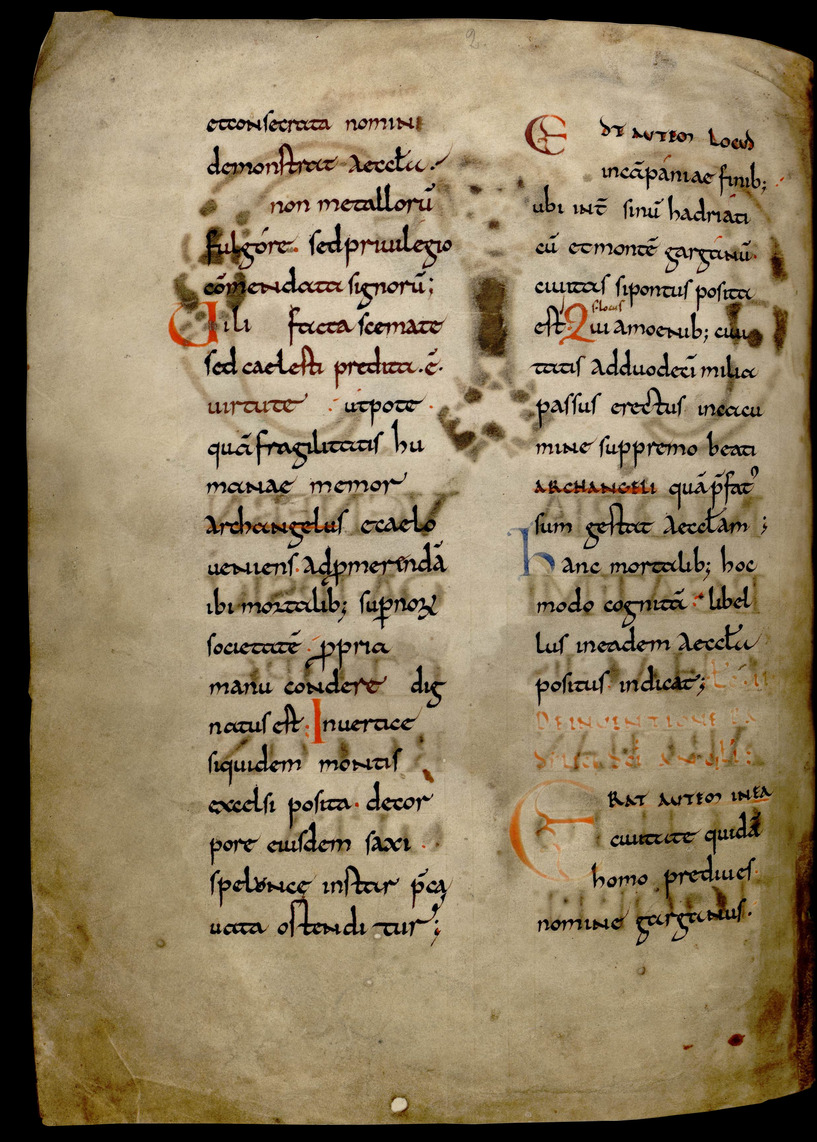 2
etconsecrata nomini
demonstrat Aeccła.
non metallorū
fulgore. sed priuilegio
cōmendata signorū;
Uili facta scemate
sed caelesti predita.ē.
uirtute utpote
quā fragilitatis hu
manae memor
Archangelus ecaelo
ueniens. adꝓmerendā
ibi mortalib; supnoꝝ
societatē ꝓpria
manu condere dig
natus est. Inuertice
siquidem montis
excelsi posita. decor
pore eiusdem saxi
speluncę instar p̄ca
uata ostenditur;
Est autem Locus
incāpaniae finib;
ubi int̄ sinū hadriati
cū etmontē garganū.
ciuitas sipontus posita
s. locus
est. Qui Amoenib; ciui
tatis Adduodeci milia
passus erectus incacu
mine suppremo beati
ARCHANGELI quā p̄fatꝰ
sum gestat Aecclam;
hanc mortalib; hoc
modo cognitā libel
lus ineadem Aeccła
positus indicat;
DEINUENTIONE
ERAT AUTEM INEA
ciuitate quidā
homo prediues
nomine garganus.